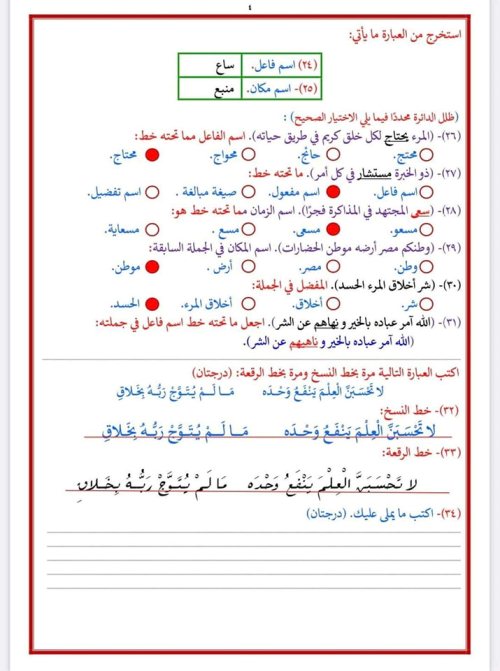 ٤
استخرج من العبارة ما يأتي:
(٢٤) اسم فاعل. ساع
(٢٥)- اسم مكان. منبع
(ظلل الدائرة محددًا فيما يلي الاختيار الصحيح) :
(٢٦)- (المرء يحتاج لكل خلق كريم في طريق حياته). اسم الفاعل مما تحته خط:
محتج. حائج. محواج. محتاج.
(٢٧)- (ذو الخبرة مستشار في كل أمر). ما تحته خط:
اسم فاعل. اسم مفعول. صيغة مبالغة . اسم تفضيل.
(٢٨)- (سعى المجتهد في المذاكرة فجرًا). اسم الزمان مما تحته خط هو:
مسعو. مسعى. مسع . مسعاية.
(٢٩)- (وطنكم مصر أرضه موطن الحضارات). اسم المكان في الجملة السابقة:
وطن. مصر. أرض . موطن.
(٣٠)- (شر أخلاق المرء الحسد). المفضل في الجملة:
شر. أخلاق. أخلاق المرء. الحسد.
(٣١)- (الله آمر عباده بالخير و نهاهم عن الشر). اجعل ما تحته خط اسم فاعل في جملته:
(الله آمر عباده بالخير و ناهيهم عن الشر).
اكتب العبارة التالية مرة بخط النسخ ومرة بخط الرقعة: (درجتان)
لا تَحْسَبَنَّ الْعِلْمَ يَنْفَعُ وَحْدَه مَا لَمْ يُتَوَّجْ رَبُّهُ بِخَلاقِ
(٣٢)- خط النسخ:
لا تَحْسَبَنَّ الْعِلْمَ يَنْفَعُ وَحْدَه مَا لَمْ يُتَوَّجْ رَبُّهُ بِخَلاقِ
(٣٣)- خط الرقعة:
لا تَحْسَبَنَّ الْعِلْمَ يَنْفَعُ وَحْدَه مَا لَمْ يُتَوَّجْ رَبُّهُ بِخَلاقِ
(٣٤)- اكتب ما يملى عليك. (درجتان)